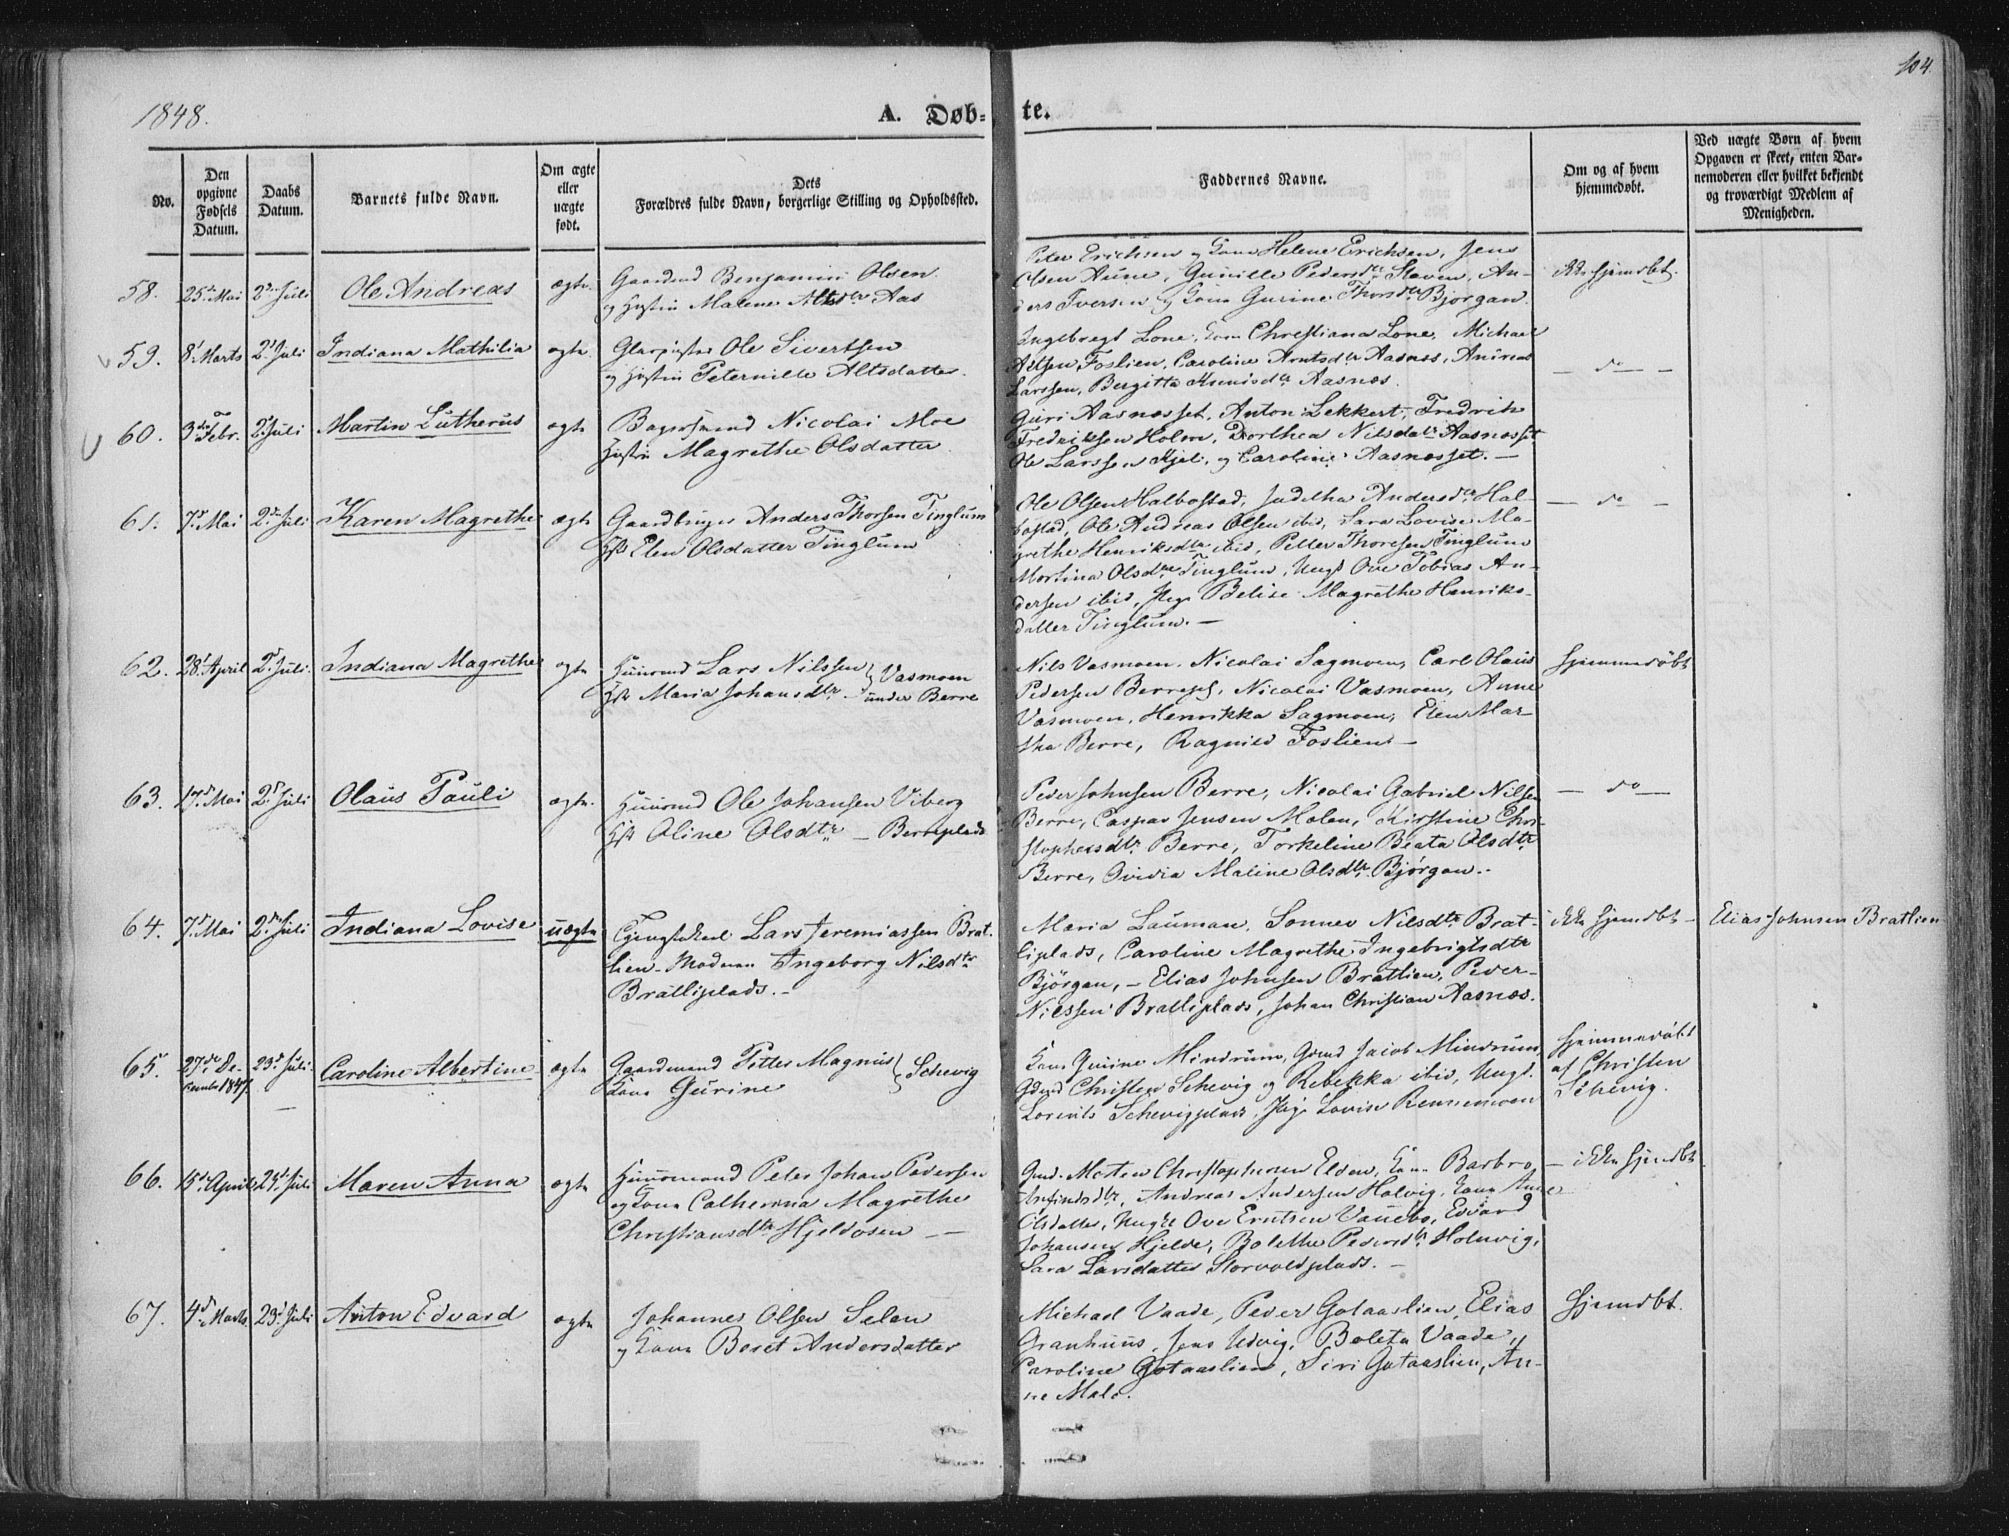 104.
1848.
A. Døb-
te.
No.
Den opgivne Fødsels Datum.
Daabs Datum.
Barnets fulde Navn.
Om ægte eller uægte født.
Dets Forældres fulde Navn, borgerlige Stilling og Opholdssted.
Faddernes Navne.
Om og af hvem hjemmedøbt.
Ved uægte Børn af hvem Opgaven er skeet, enten Barnemoderen eller hvilket bekjendt og troværdigt Medlem af Menigheden.
58. 25de Mai 2den Juli Ole Andreas ægte
Gaardmd Benjamin Olsen
og Hustru Malene Altsdtr Aas
Peter Erichsen og Kone Helene Erichsen, Jens
Olsen Aune, Gunille Pedersdtr Staven, An-
ders Iversen og Kone Gurine Thorsdtr Bjørgan.
ikke hjemdbt.
59. 8d Marts 2d Juli Indiana Mathilia ægte
Ole Sivertsen
og Hustru Peternille Altsdatter.
Ingebregt Lone, Kone Christiana Lone, Michael
Altsen Foslien, Caroline Arntsdtr Aasnes, Andreas
Larssen, Bergitta Aasnes.
— do —
60. 3die Febr. 2d Juli Martin Lutherus ægte
Nicolai Moe
Hustru Magrethe Olsdatter
Guri Aasnesset, Anton Lekkert, Fredrik
Fredriksen Holm, Dorthea Nilsdatr Aasnesset
Ole Larssen Kjel. og Caroline Aasnesset. —
61. 7d Mai 2den Juli Karen Magrethe ægte
Gaardbruger Anders Thorsen Tinglum
Hst Elen Olsdatter Tinglum
Ole Olsen Halbostad, Judetha Andersdtr Hal-
bostad, Ole Andreas Olsen ibid, Sara Lovise Ma-
grethe Henriksdtr ibid, Petter Thoresen Tinglum
Martina Olsdtr Tinglum, Ungk Ove Tobias An-
dersen ibid, Pige Belise Magrethe Henriks-
datter Tinglum. —
— do —
62. 28d April 2d Juli. Indiana Magrethe ægte
Huusmd Lars Nilssen } Vasmoen
Hst Maria Johansdtr. } under Berre
Nils Vasmoen, Nicolai Sagmoen, Carl Olaus
Pedersen Berre, Nicolai Vasmoen, Anne
Vasmoen, Henrikka Sagmoen, Elen Mar-
tha Berre, Ragnild Foslien. —
Hjemmedøbt
63. 17d Mai 2d Juli Olaus Pauli ægte
Huusmd Ole Johansen Viberg
Hst Oline Olsdtr — Berreplads
Peder Johnsen Berre, Nicolai Gabriel Nilsen
Berre, Caspar Jensen Molen, Kirstine Chri-
stophersdtr Berre, Torkeline Beata Olsdtr
Berre, Ovidia Maline Olsdtr Bjørgan.
— do —
64. 7d Mai 2den Juli Indiana Lovise uægte
Lars Jeremiassen Brat-
lien. Moderen Ingeborg Nilsdtr
Bratliplads. —
Maria Lauman, Sonnev Nilsdtr Brat-
liplads, Caroline Magrethe Ingebrigtsdtr
Bjørgan, — Elias Johnsen Bratlien, Peder
Nilssen Bratliplads, Johan Christian Aasnes.
ikke hjemdbt —
Elias Johnsen Bratlien
65. 27de De-
cember 1847. 23d Juli. Caroline Albertine ægte
Gaardmand Petter Magnus } Schevig
Kone Gurine
Kone Gurine Mindrum, Gdmd Jacob Mindrum,
Gdmd Christen Schevig og Rebekka ibid, Ungk.
Lorents Schevigplads, Pige Lovise Rennemoen
Hjemmedøbt
af Christen
Schevig.
66. 15de April 23d Juli Maren Anna ægte
Huusmand Peter Johan Pedersen
og Kone Catherina Magrethe
Christiansdtr Hjeldosen —
Gmd. Morten Christophersen Elden, Kone Barbro
Arfindsdtr, Andreas Andersen Holvig, Kone Anne
Olsdatter, Ungk Ove Erntsen Vanebo, Edvard
Johansen Hjelde, Bolethe Pedersdtr Holmvig,
Sara Larsdatter Storvoldplads. —
— ikke hjemdbt
67. 4d Marts 23d Juli Anton Edvard ægte
Johannes Olsen Selan
og Kone Beret Andersdatter
Michael Vaade, Peder Gotaaslien, Elias
Granhuus, Jens Udvig, Boleta Vaade,
Caroline Gotaaslien, Siri Gotaaslien, An-
ne Malo.
Hjemdbt.